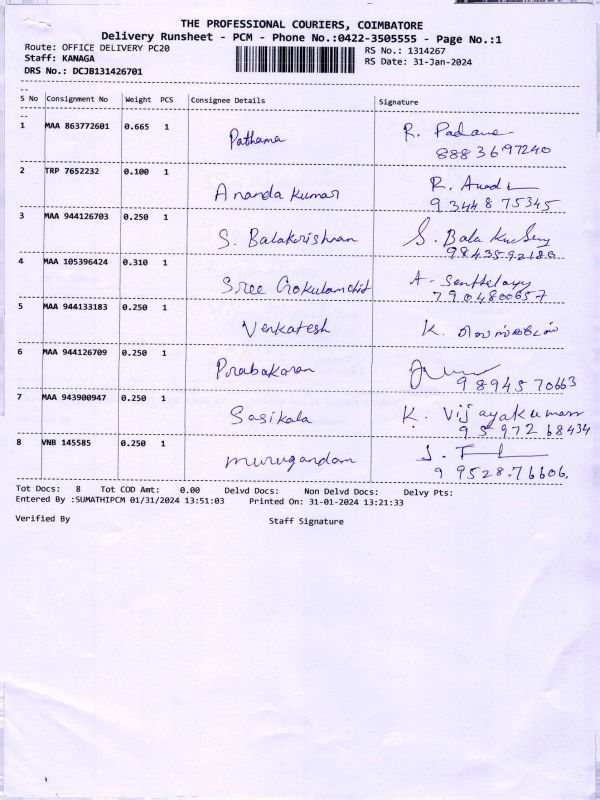 THE PROFESSIONAL COURIERS, COIMBATORE
Delivery Runsheet - PCM - Phone No.:0422-3505555 - Page No.:1
Route: OFFICE DELIVERY PC20 RS No.: 1314267
Staff: KANAGA RS Date: 31-Jan-2024
DRS No.: DCJB131426701
S No Consignment No Weight PCS Consignee Details Signature
1 MAA 863772601 0.665 1 Pathama R.
8883697240
2 TRP 7652232 0.100 1 Ananda Kumar R.
9344875345
3 MAA 944126703 0.250 1 S. Balakrishnan S. Bala
9843592180
4 MAA 105396424 0.310 1 Sree Gokulamchit A-
7904800657
5 MAA 944133183 0.250 1 Venkatesh K.
6 MAA 944126709 0.250 1 Prabakaran
9894570663
7 MAA 943900947 0.250 1 Sasikala K. Vijayakumar
9597268434
8 VNB 145585 0.250 1 murugandam
9952876606.
Tot Docs: 8 Tot COD Amt: 0.00 Delvd Docs: Non Delvd Docs: Delvy Pts:
Entered By :SUMATHIPCM 01/31/2024 13:51:03 Printed On: 31-01-2024 13:21:33
Verified By Staff Signature